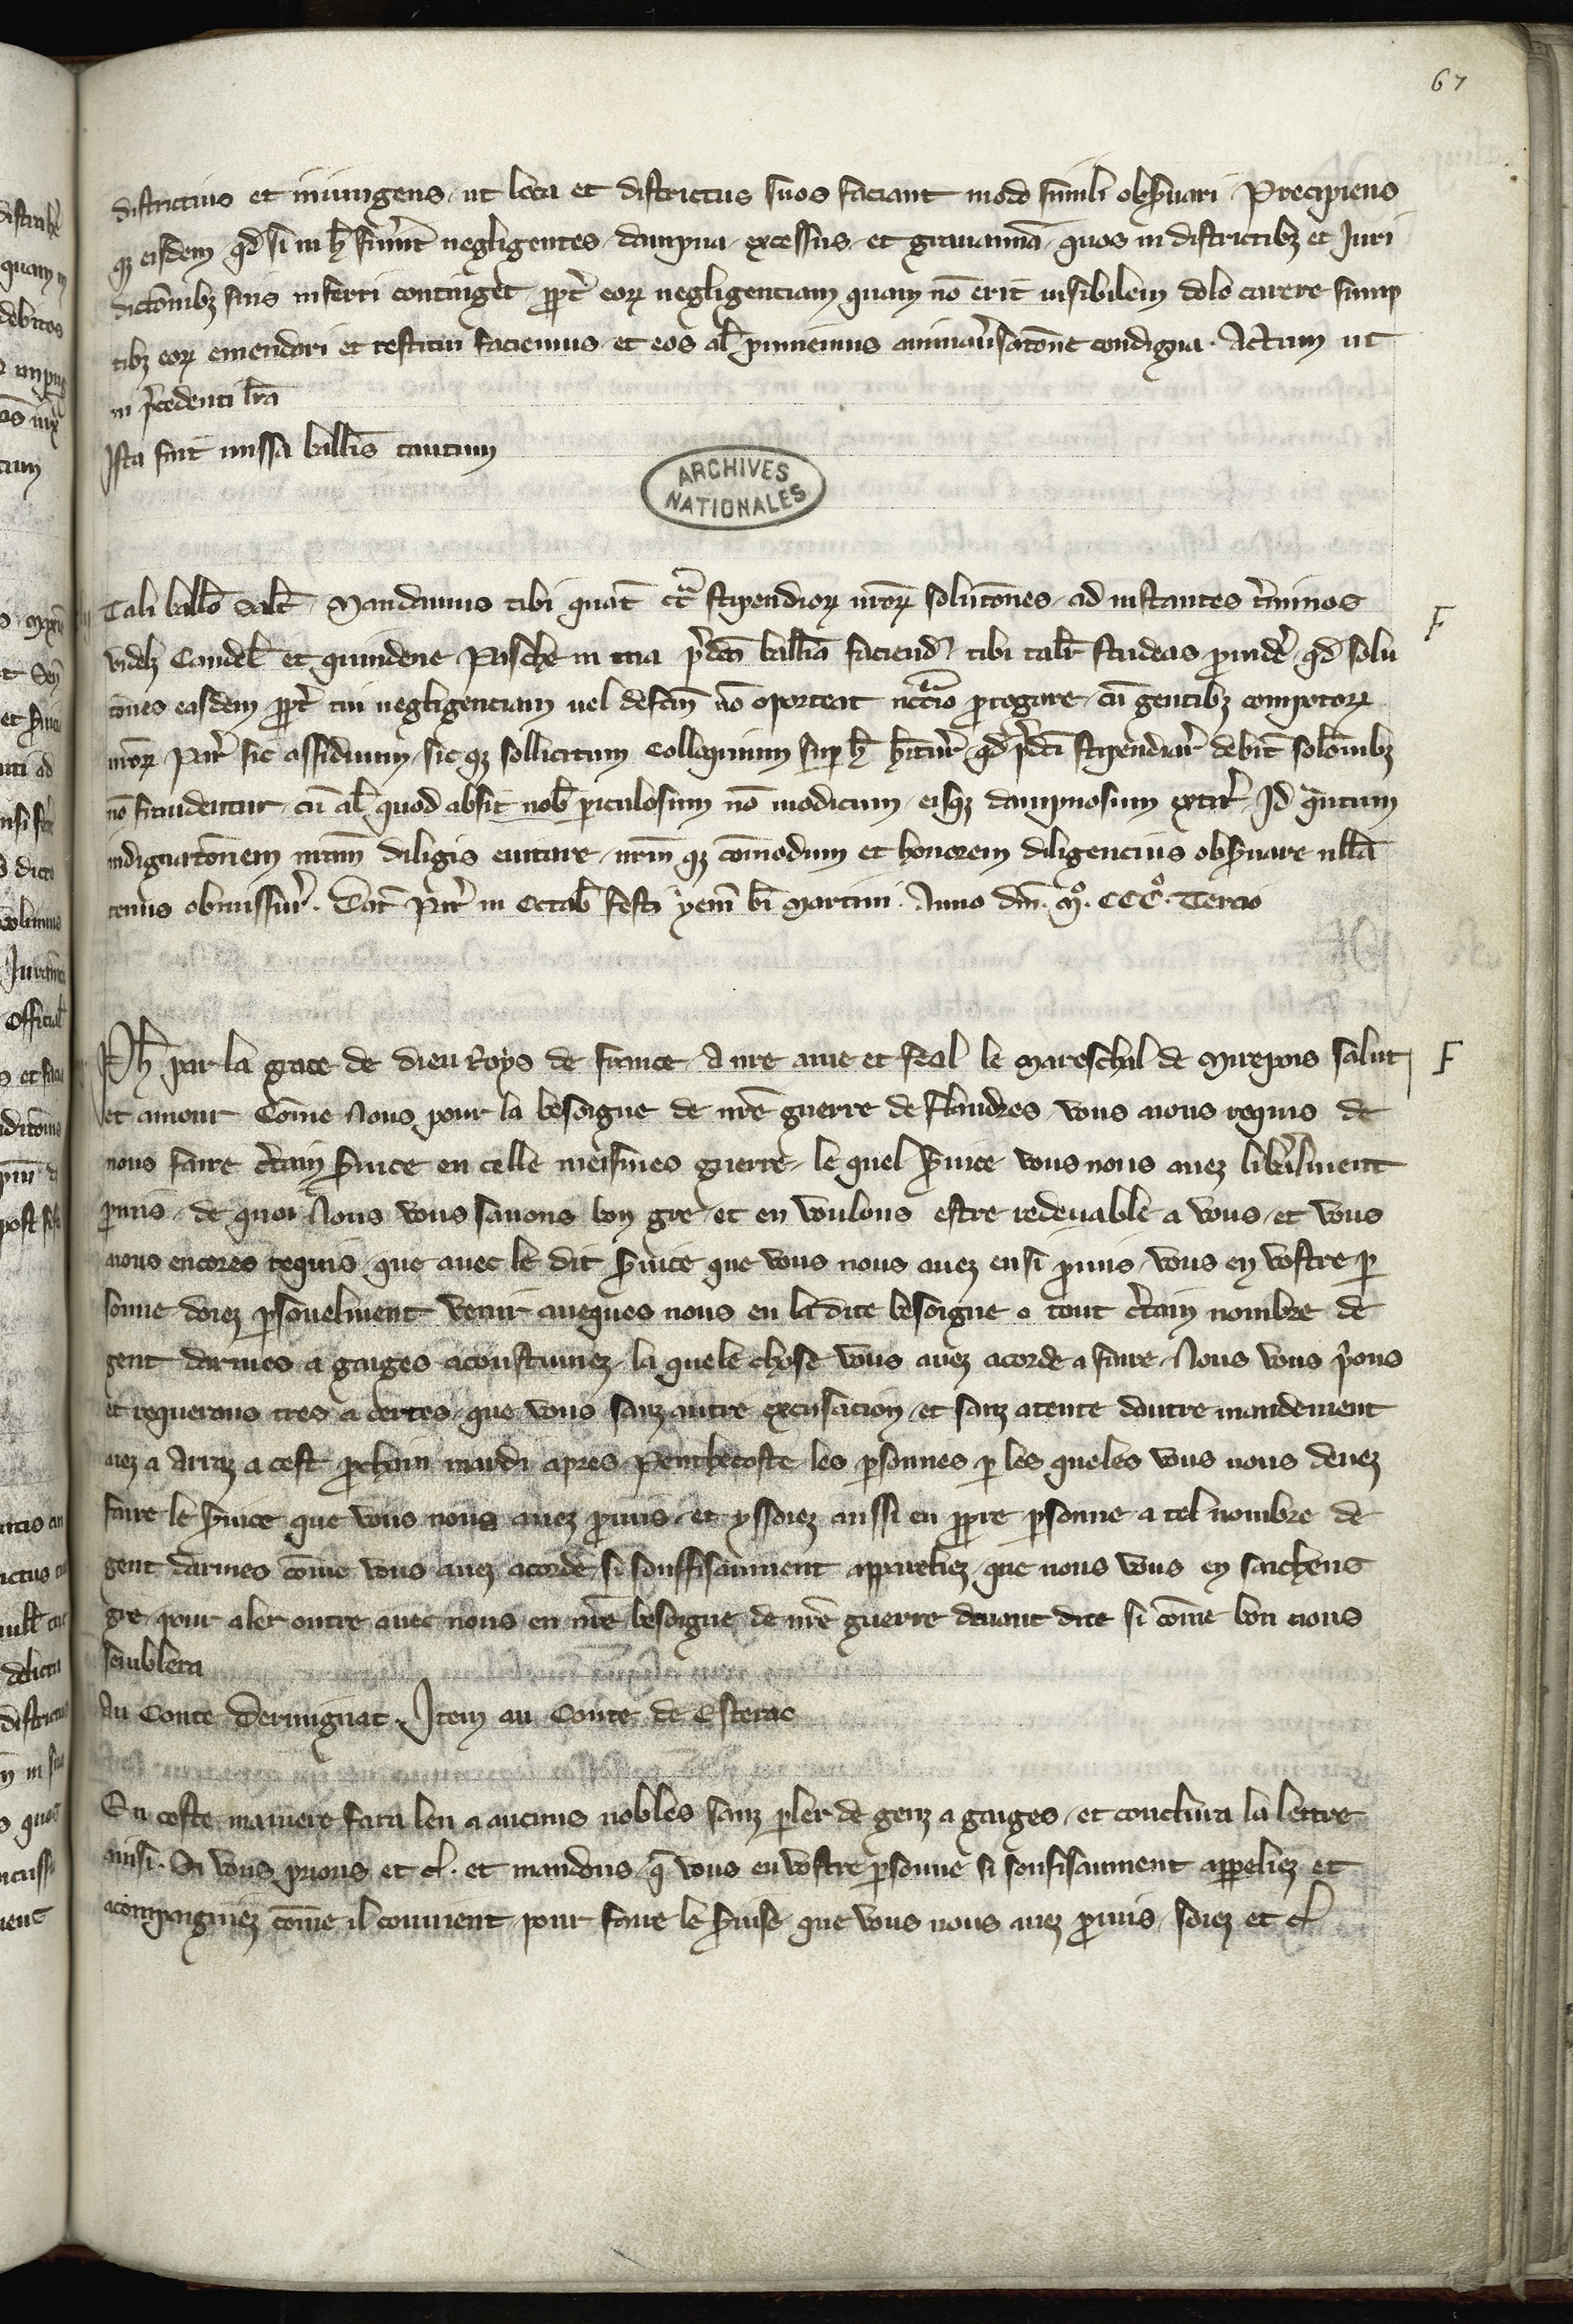 67
districtius et iniungens, ut loca et districtus suos faciant modo simili obſvari. Precipiens
qꝫ eisdem qd̄ si in h̄ fuerīt negligentes, dampna, excessus, et grauamīa, quos in districtibꝫ et Juri
dictōnibꝫ suis inferri continget, ꝓpt̄ eoꝝ negligenciam, quam nō erit visibilem dolo carere sump
tibꝫ eoꝝ emendari et restitui faciemus, et eos al̄ puniemus animadūsatōne condigna. Actum ut
in p̄cedenti lr̄a
Ista fuit missa balliūs tantum
ARCHIVES NATIONALES
Tali balliō salt̄. Mandamus tibi quat̄ cit̄ stipendioꝝ nr̄oꝝ solutōnes, ad instantes t̄minos
videlꝫ Candel̄ et quindene Pasche in tua p̄dc̄a ballīa faciend̄ tibi talr̄ studeas ꝓuidē, qd̄ solu
tōnes easdem ꝓpt̄ tui negligenciam uel defcm̄ nō oporteat ꝓrogare, cū gentibꝫ compotoꝝ
nr̄oꝝ Par̄ sic assiduum, sic qꝫ sollicitum Colloquium suꝑ h̄ hītur̄, qd̄ p̄dc̄i stipendiar̄ debit̄ solōnibꝫ
nō fraudentur, cū al̄ quod absit nob̄ ꝑiculosum nō modicum, eisqꝫ dampnosum extit̄. Id q̄ntum
indignatōnem nr̄am diligis euitare, nr̄m qꝫ cōmodum et honorem diligencius obſvare nllā
tenus obmissur̄. Dat̄ Par̄ in Octab̄ festi yem̄ bī Martini. Anno dn̄i. mº. CCCº. Tercio
F
Ph̄ par la grace de dieu Roys de france, A nr̄e ame et feal le Mareschal de Mirepois salut
et amour. Cōme Nous pour la besoigne de nr̄e guerre de Flandres, vous aions requis de
nous faire c̄tain s̄uice en celle meismes guerre, le quel s̄uice vous nous auez lib̄alment
ꝓmis, de quoi Nous vous sauons bon gre, et en voulons estre redeuable a vous, et vous
aions encores requis, que auec le dit s̄uice que vous nous auez ensi ꝓmis, vous en vostre ꝑ
sonne doiez ꝑsonelment venir aueques nous en la dite besoigne o tout c̄tain nombre de
gent darmes a gaiges acoustumez, la quele chose vous auez acorde a faire, Nous vous p̄ons
et requerons tres a certes, que vous sanz autre excusacion, et sanz atente dautre mandement
aiez a Arraz a cest ꝓchain mardi apres Penthecoste, les ꝑsonnes ꝑ les queles vous nous deuez
faire le s̄uice que vous nous auez ꝓmis, et y soiez aussi en ꝓpre ꝑsonne a tel nombre de
gent darmes cōme vous auez acorde, si souffisaument apparelliez, que nous vous en sachens
gre, pour aler outre auec nous en nr̄e besoigne de nr̄e guerre deuant dite si cōme bon nous
semblera
F
Au Conte Dermignac. Item au Conte de Esterac
En ceste maniere fara len a aucuns nobles sanz ꝑler de genz a gaiges, et concluira la lettre
ainsi. Si vous prions et c̄. et mandons, q̄ vous en vostre ꝑsonne si soufisaument appeliez et
acompaigniez cōme il conuient pour faire le s̄uise que vous nous auez ꝓmis, soiez et c̄